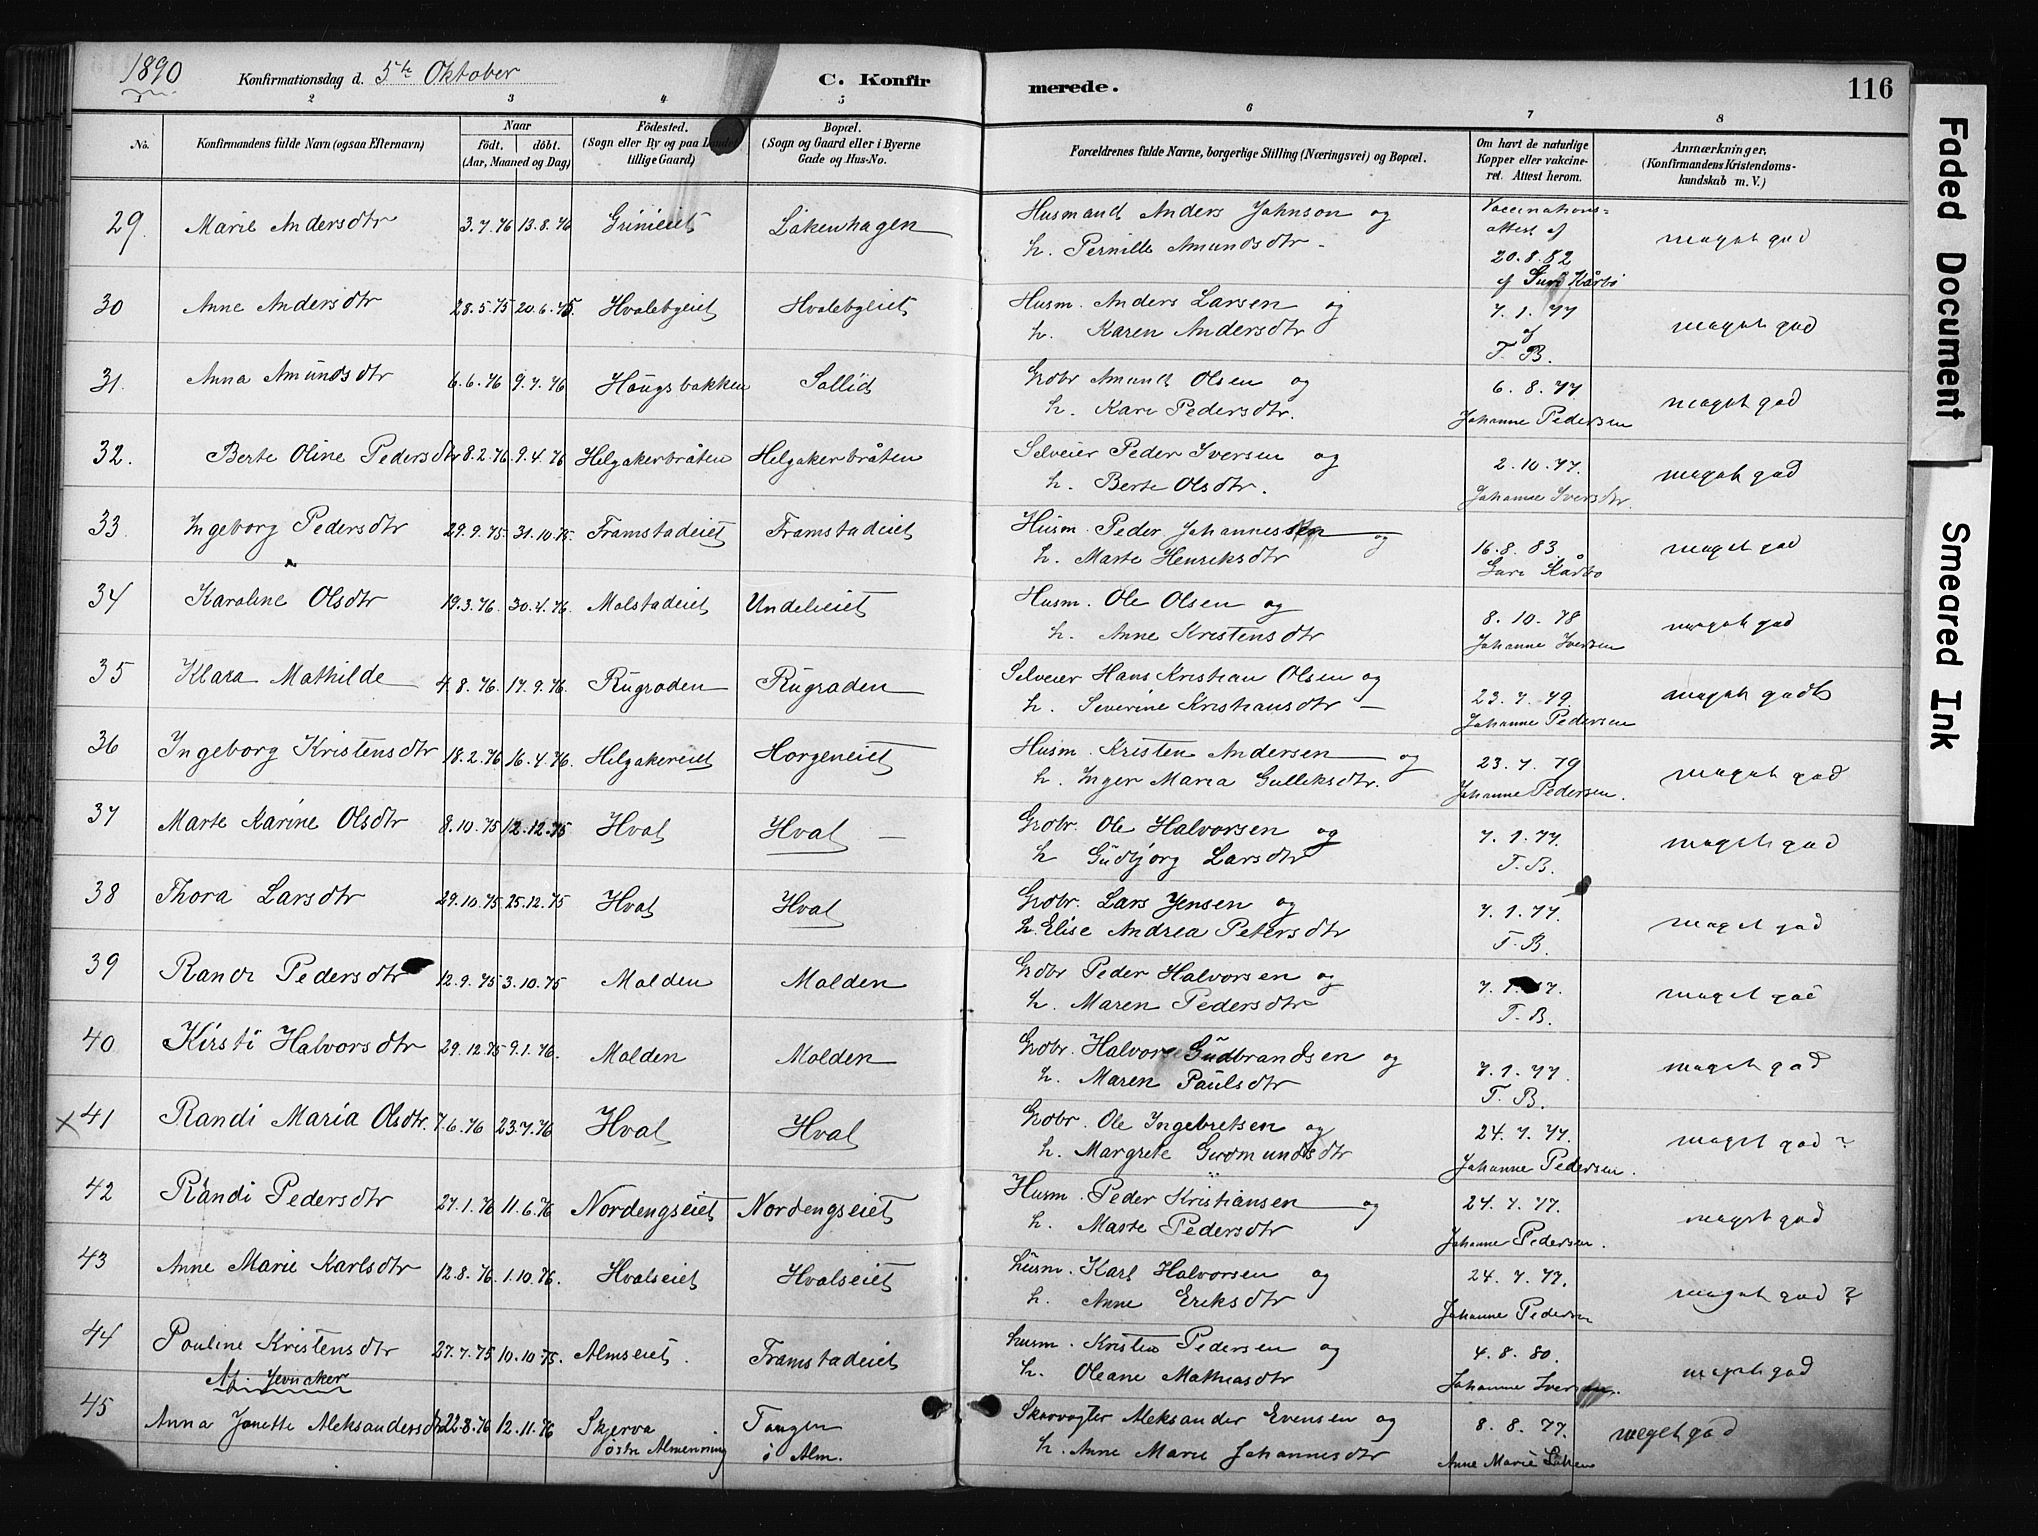 1890 Konfirmationsdag d. 5te Oktober C. Konfir merede. 116
1 2 3 4 5 6 7 8
No. Konfirmandens fulde Navn (ogsaa Efternavn) Naar födt. döbt. (Aar, Maaned og Dag) Födested. (Sogn eller By og paa Landet tillige Gaard) Bopæl. (Sogn og Gaard eller i Byerne Gade og Hus-No. Forældrenes fulde Navne, borgerlige Stilling (Næringsvei) og Bopæl. Om havt de naturlige Kopper eller vakcineret. Attest herom. Anmærkninger. (Konfirmandens Kristendomskundskab m. V.)
29. Marie Andersdtr 3.7.76 13.8.76 Grinieiet Låkenhagen Husmand Anders Johnson og Vaccinations=
h. Pernille Amundsdtr - attest af meget god
20.8.82
af Guri Kårbø
30 Anne Andersdtr 28.5.75 20.6.75. Hvalebyeiet Hvalebyeiet Husm. Anders Larsen og 7.1.77 meget god
h. Karen Andersdtr af
T. B.
31. Anna Amundsdtr 6.6.76 9.7.76 Haugsbakken Sollid Grdbr Amund Olsen og 6.8.77 meget god
h. Kari Pedersdtr. Johanne Pedersen
32. Berte Oline Pedersdtr 8.2.76. 9.4.76 Helgakerbråten Helgakerbråten Selveier Peder Iversen og 2.10.77. meget god
h. Berte Olsdtr. Johanne Iversdtr.
33. Ingeborg Pedersdtr 29.9.75. 31.10.75. Framstadeiet Framstadeiet Husm. Peder Johannessen og 16.8.83. meget god
h. Marte Henriksdtr Guri Kårbø
34 Karoline Olsdtr 19.3.76. 30.4.76. Molstadeiet Undelieiet Husm. Ole Olsen og 8.10.78 meget god
h. Anne Kristensdtr Johanne Iversen
35 Klara Mathilde 4.8.76. 17.9.76. Rugraden Rugraden Selveier Hans Kristian Olsen og 23.7.79. meget godt
h. Severine Kristiansdtr - Johanne Pedersen
36 Ingeborg Kristensdtr 18.2.76 16.4.76. Helgakereiet Horgeneiet Husm. Kristen Andersen og 23.7.79 meget god
h. Inger Maria Gulleksdtr. Johanne Pedersen.
37 Marte Karine Olsdtr 8.10.75 12.12.75 Hval Hval - Grdbr. Ole Halvorsen og 7.1.77. meget god
h Gudbjørg Larsdtr T.B.
38 Thora Larsdtr 29.10.75 25.12.75 Hval Hval Grdbr. Lars Jensen og 7.1.77. meget god
h. Elise Andrea Petersdtr T.B.
39 Randi Pedersdtr 12.9.75 3.10.75 Molden Molden Grdbr Peder Halvorsen og 7.1.77. meget god
h. Maren Pedersdtr T.B.
40 Kirsti Halvorsdtr 29.12.75 9.1.76. Molden Molden Grdbr. Halvor Gudbrandsen og 7.1.77. meget god
h. Maren Paulsdtr T.B.
x 41 Randi Maria Olsdtr. 7.6.76 23.7.76 Hval Hval Grdbr. Ole Ingebretsen og 24.7.77. meget god?
h. Margrete Gudmundsdtr Johanne Pedersen.
42 Randi Pedersdtr 27.1.76 11.6.76 Nordengseiet Nordengseiet Husm. Peder Kristiansen og 24.7.77. meget god
h. Marte Pedersdtr Johanne Pedersen.
43 Anne Marie Karlsdtr 12.8.76. 1.10.76. Hvalseiet Hvalseiet husm. Karl Halvorsen og 24.7.77. meget god?
h. Anne Eriksdtr Johanne Pedersen
44 Pauline Kristensdtr 27.7.75 10.10.75. Almseiet. Framstadeiet husm. Kristen Pedersen og 4.8.80. meget god
h. Oleane Mathiasdtr Johanne Iversen.
45 Anna Janette Aleksandersdtr 22.8.76 12.11.76 Skjerva Tangen Skovvogter Aleksander Evensen og 8.8.77. meget god
østre Almenning ö Alm. h. Anne Marie Johannesdtr Anne Marie
Faded Document
Smeared Ink